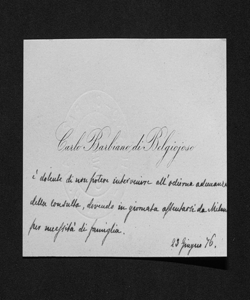 Carlo Barbiano di Belgiojoso
è dolente di non potere intervenire all'odierna adunanza
della Consulta, dovendo in giornata assentarsi da Milano
per necessità di famiglia.
23 Giugno 76.